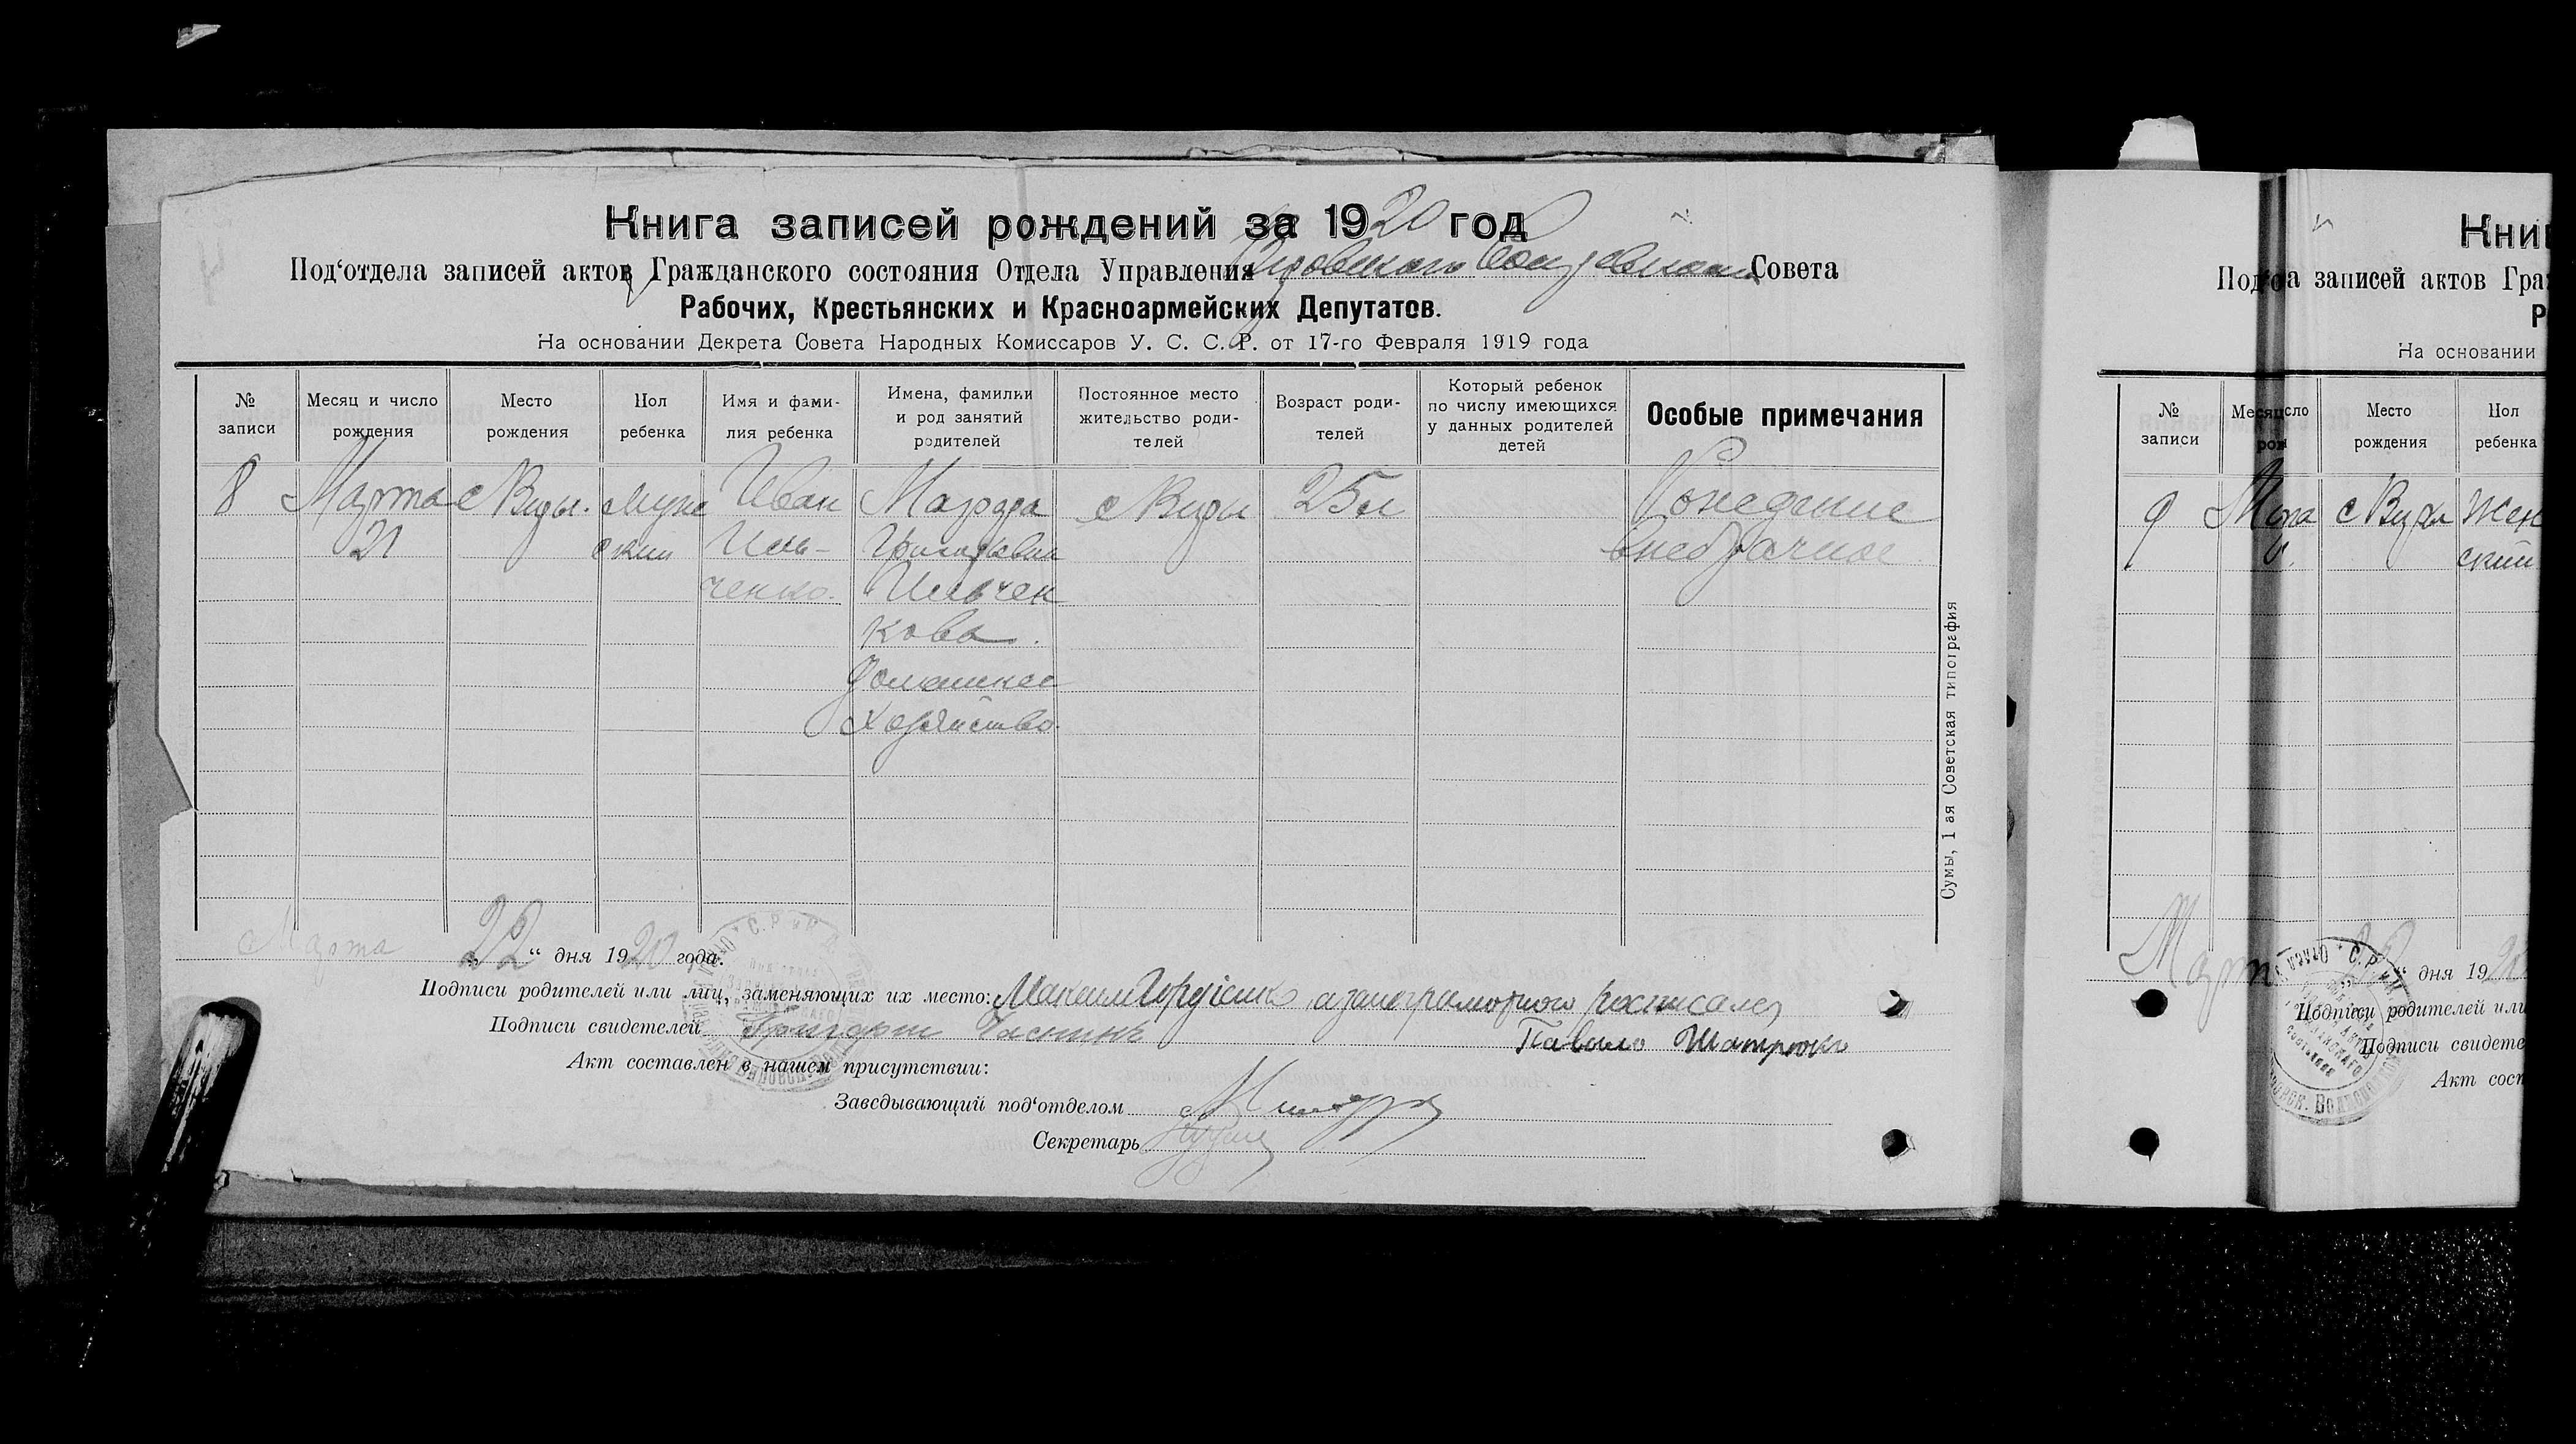 Книга записей рождений за 1920 год
Под‘отдела записей актов Гражданского состояния Отдела Управления Совета
Рабочих, Крестьянских и Красноармейских Депутатов.
На основании Декрета Совета Народных Комиссаров У. С. С. Р. от 17-го Февраля 1919 года
№ записи
Месяц и число рождения
Место рождения
Пол ребенка
Имя и фами-
лия ребенка
Имена, фамилии
и род занятий
родителей
Постоянное место
жительство роди-
телей
Возраст роди-
телей
Который ребенок
по числу имеющихся
у данных родителей
детей
Особые примечания
8
Марта
21
с Виры.
муже
ский
Иван
Иль-
ченко.
Марфа
Ильчен
кова.
домашнее
хозяйство.
с Виры
25 л
внебрачное
Сумы, 1 ая Советская типография
Марта „22“ дня 1920 года.
Подписи родителей или лиц, заменяющих их место: Максим Гордіенко а занеграмотного росписался
Подписи свидетелей Григорий
Павило
Акт составлен в нашем присутствии:
Заведывающий под‘отделом
Секретарь
Книг
Под а записей актов Граж
Р
На основании
№ записи
Место рождения
Пол ребенка
9
с Виры
Жен
ский
Март дня 1920
Подписи родителей или
Подписи свидете
Акт сост